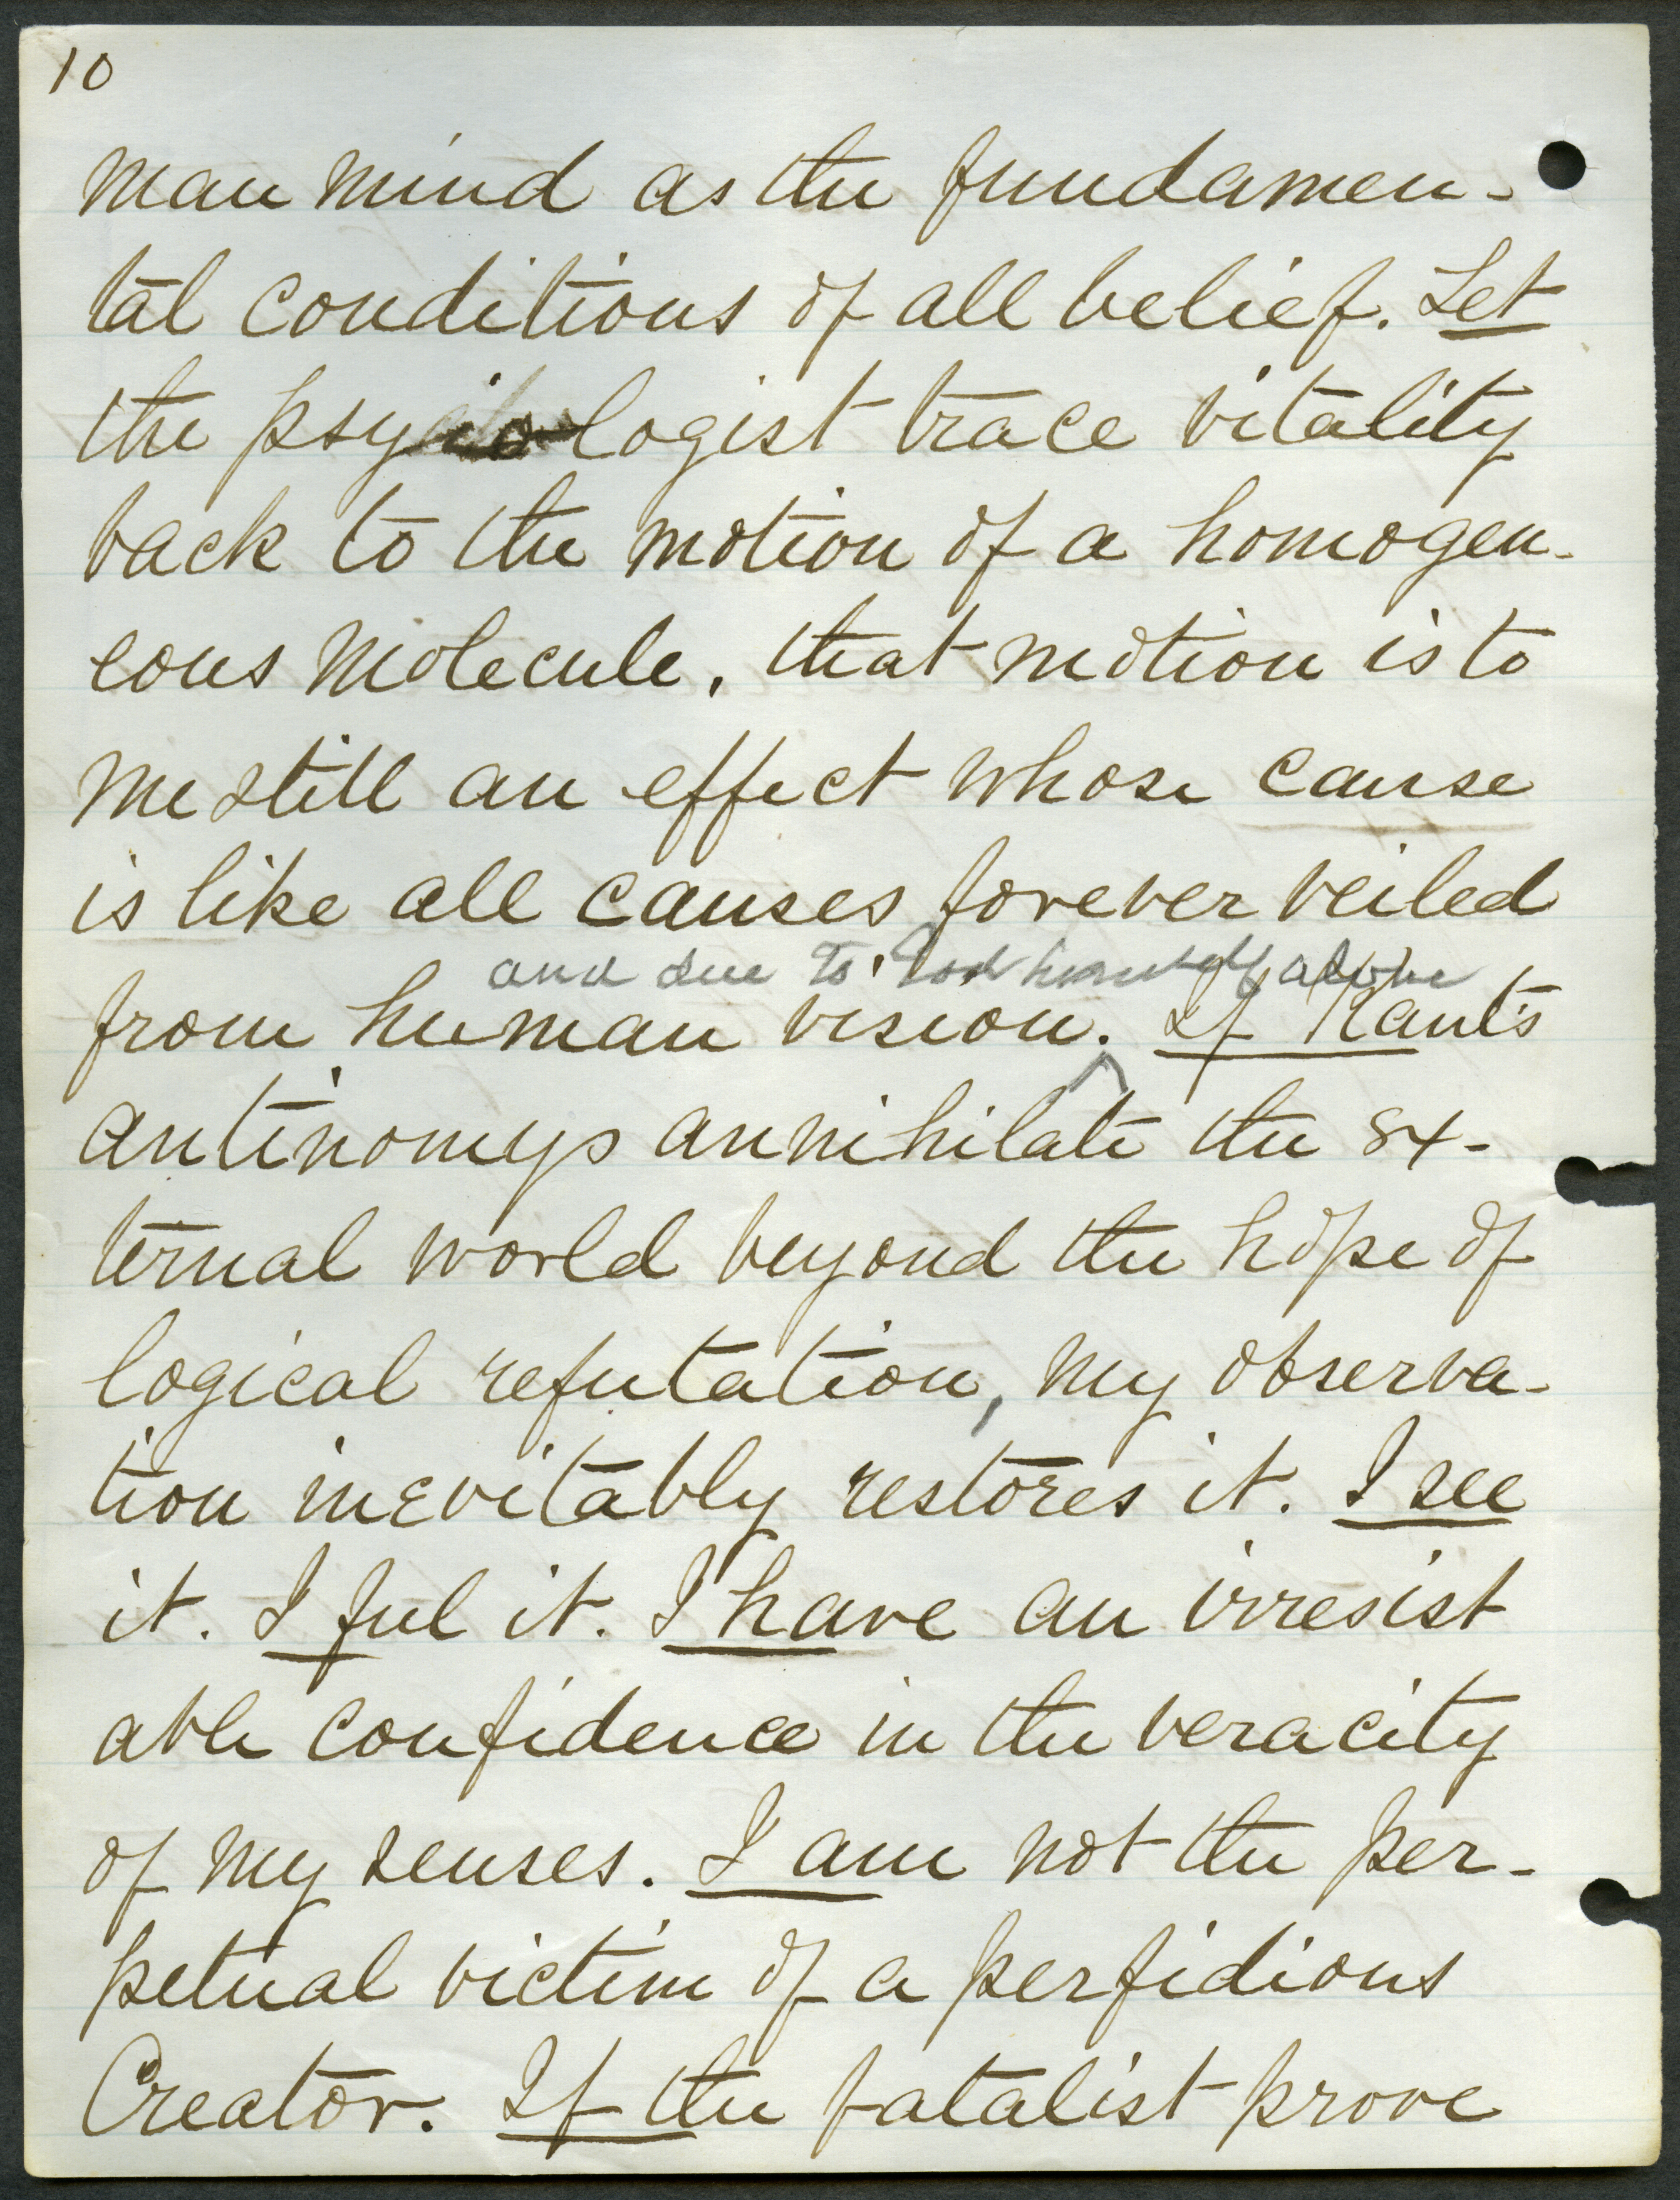 10
man mind as the fundamen-
tal conditions of all belief. Let
the psycologist trace vitality
back to the motion of a homogen-
eous molecule, that motion is to
me still an effect whose cause
is like all causes forever veiled
and due to God himself alone
from human vision. If Kant's
antinomys annihilate the ex-
ternal world beyond the hope of
logical refutation, my observa-
tion inevitably restores it. I see
it. I feel it. I have an irresist
able confidence in the veracity
of my senses. I am not the per-
petual victim of a perfidious
Creator. If the fatalist prove